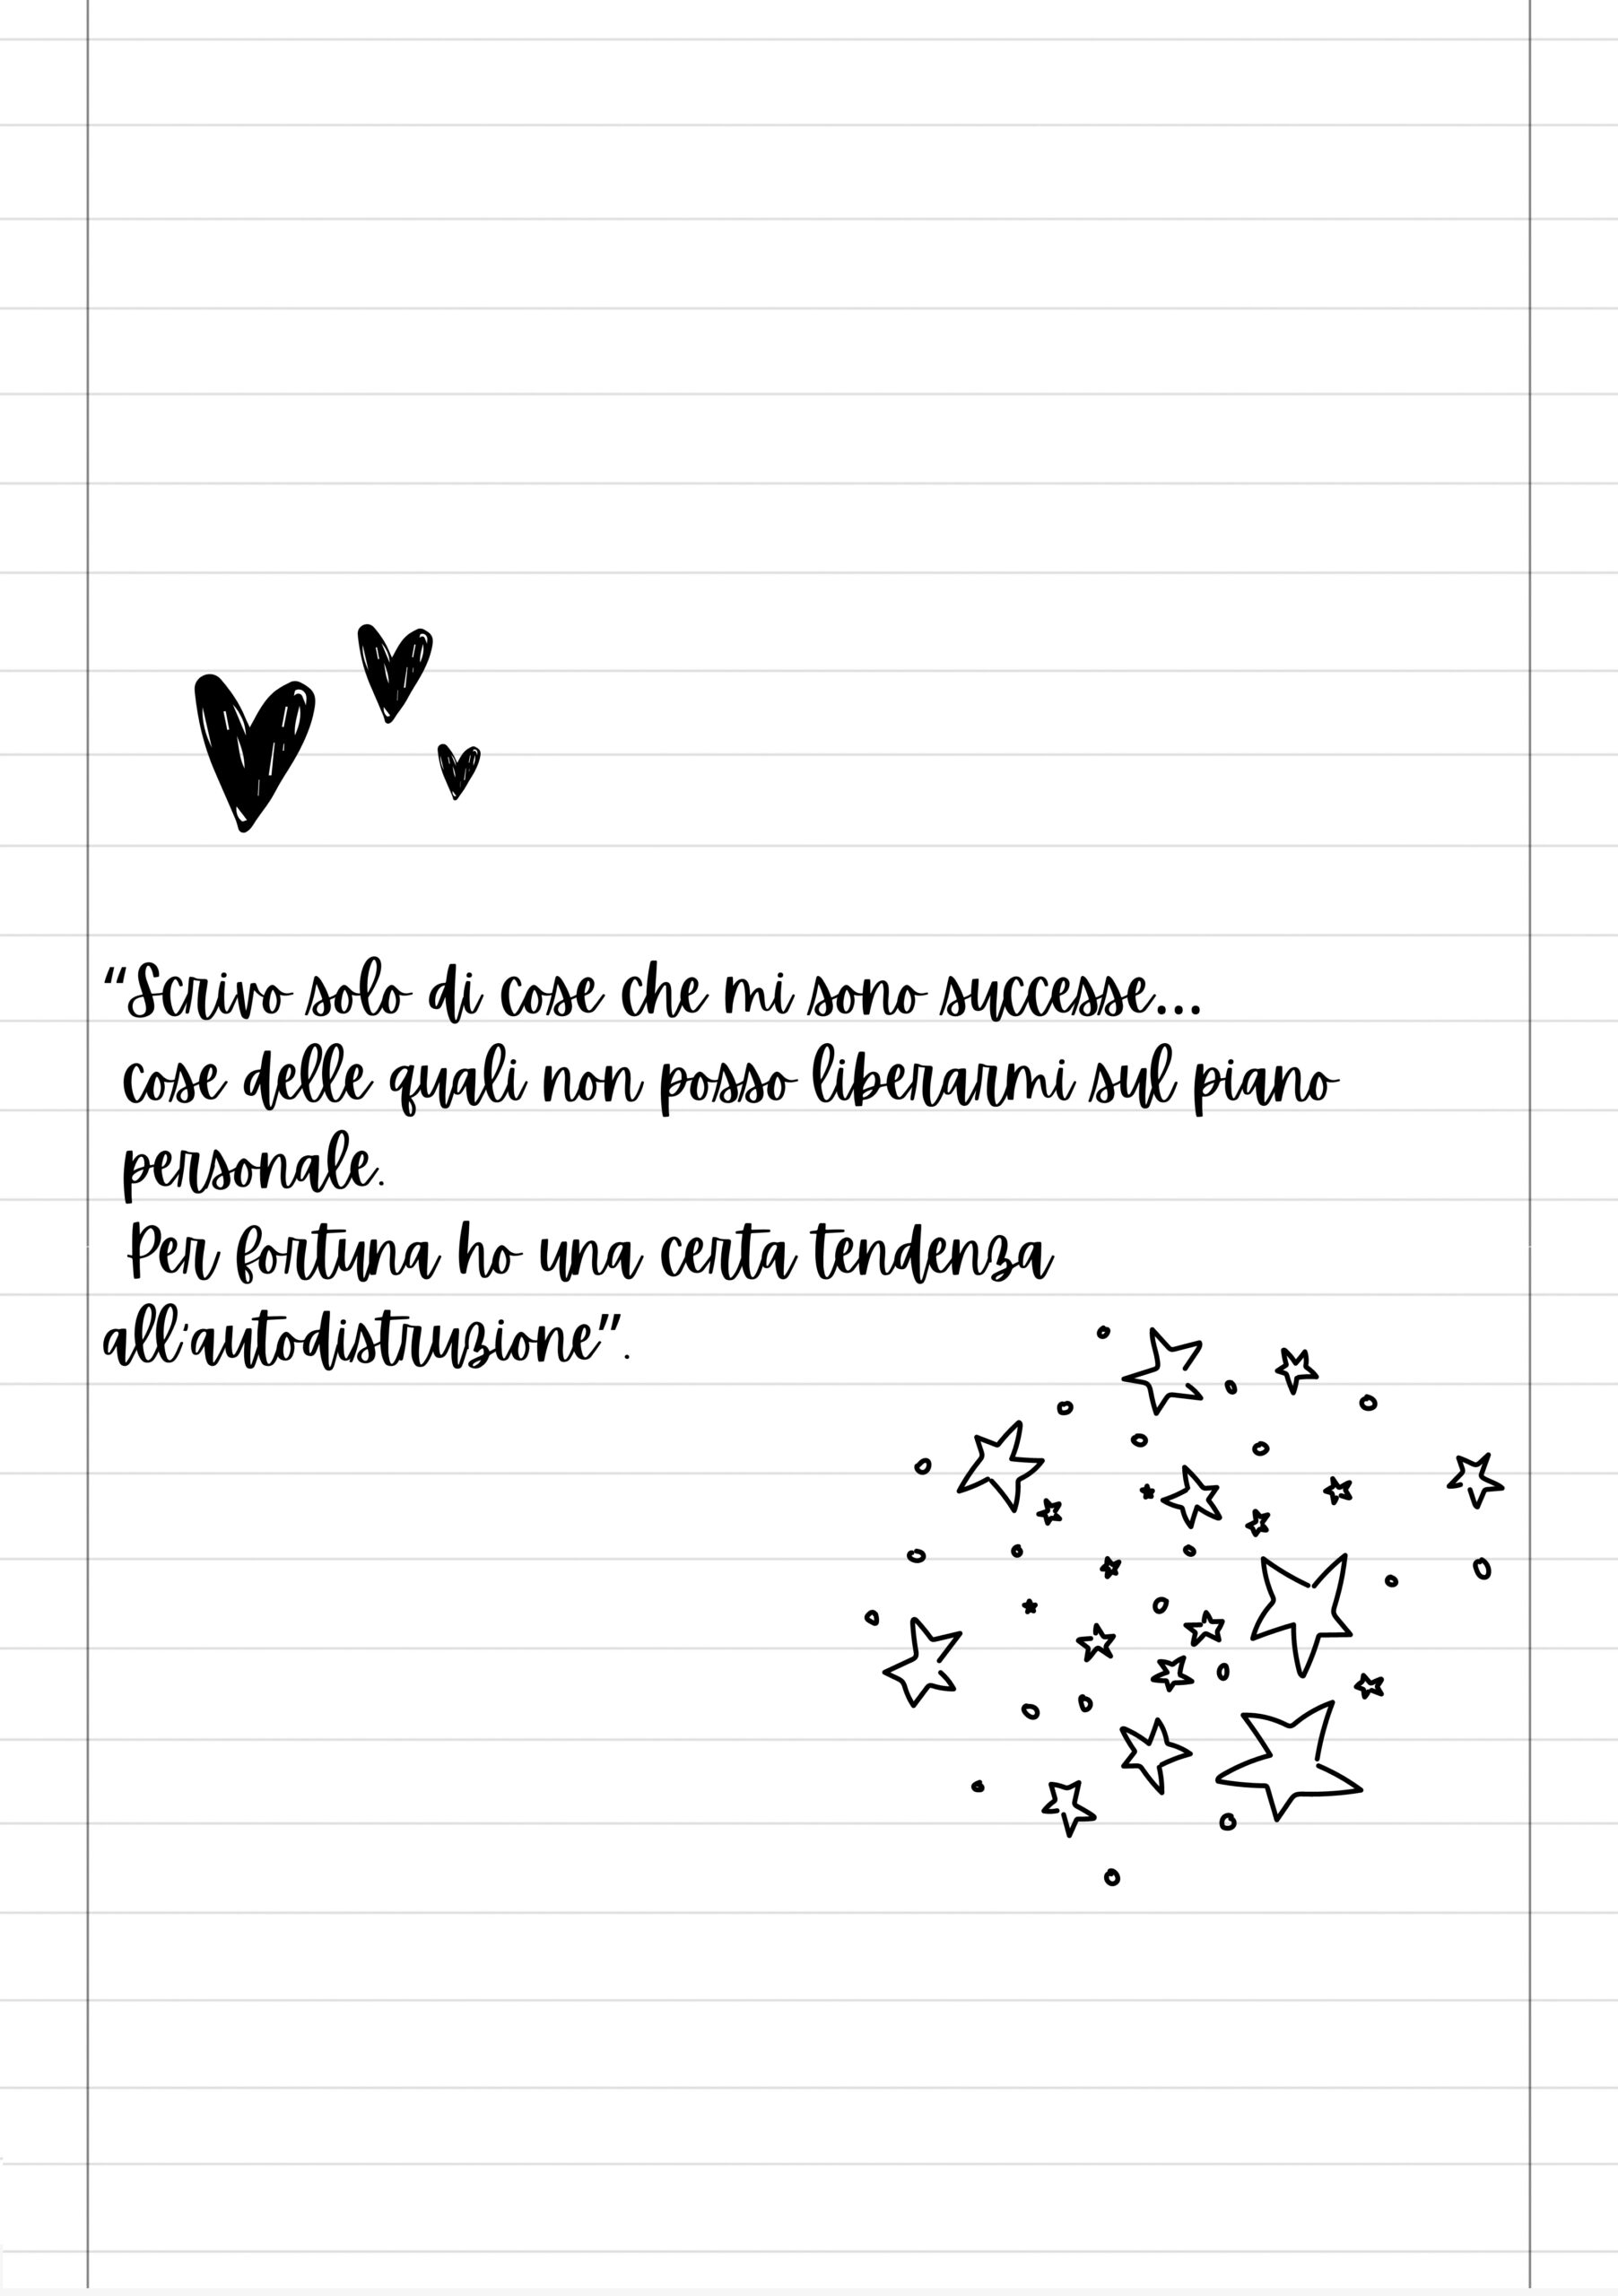 “Scrivo solo di cose che mi sono successe...
cose delle quali non posso liberarmi sul piano
personale.
Per fortuna ho una certa tendenza
all'autodistruzione”.